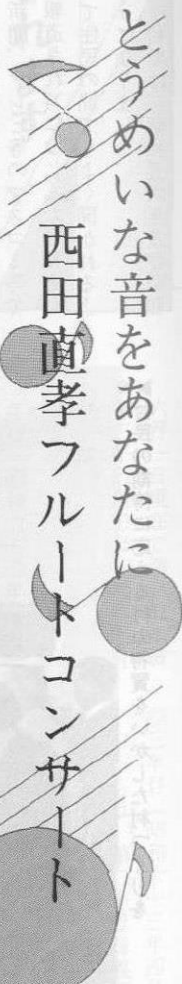 とうめいな音をあなたに
西田直孝フルートコンサート